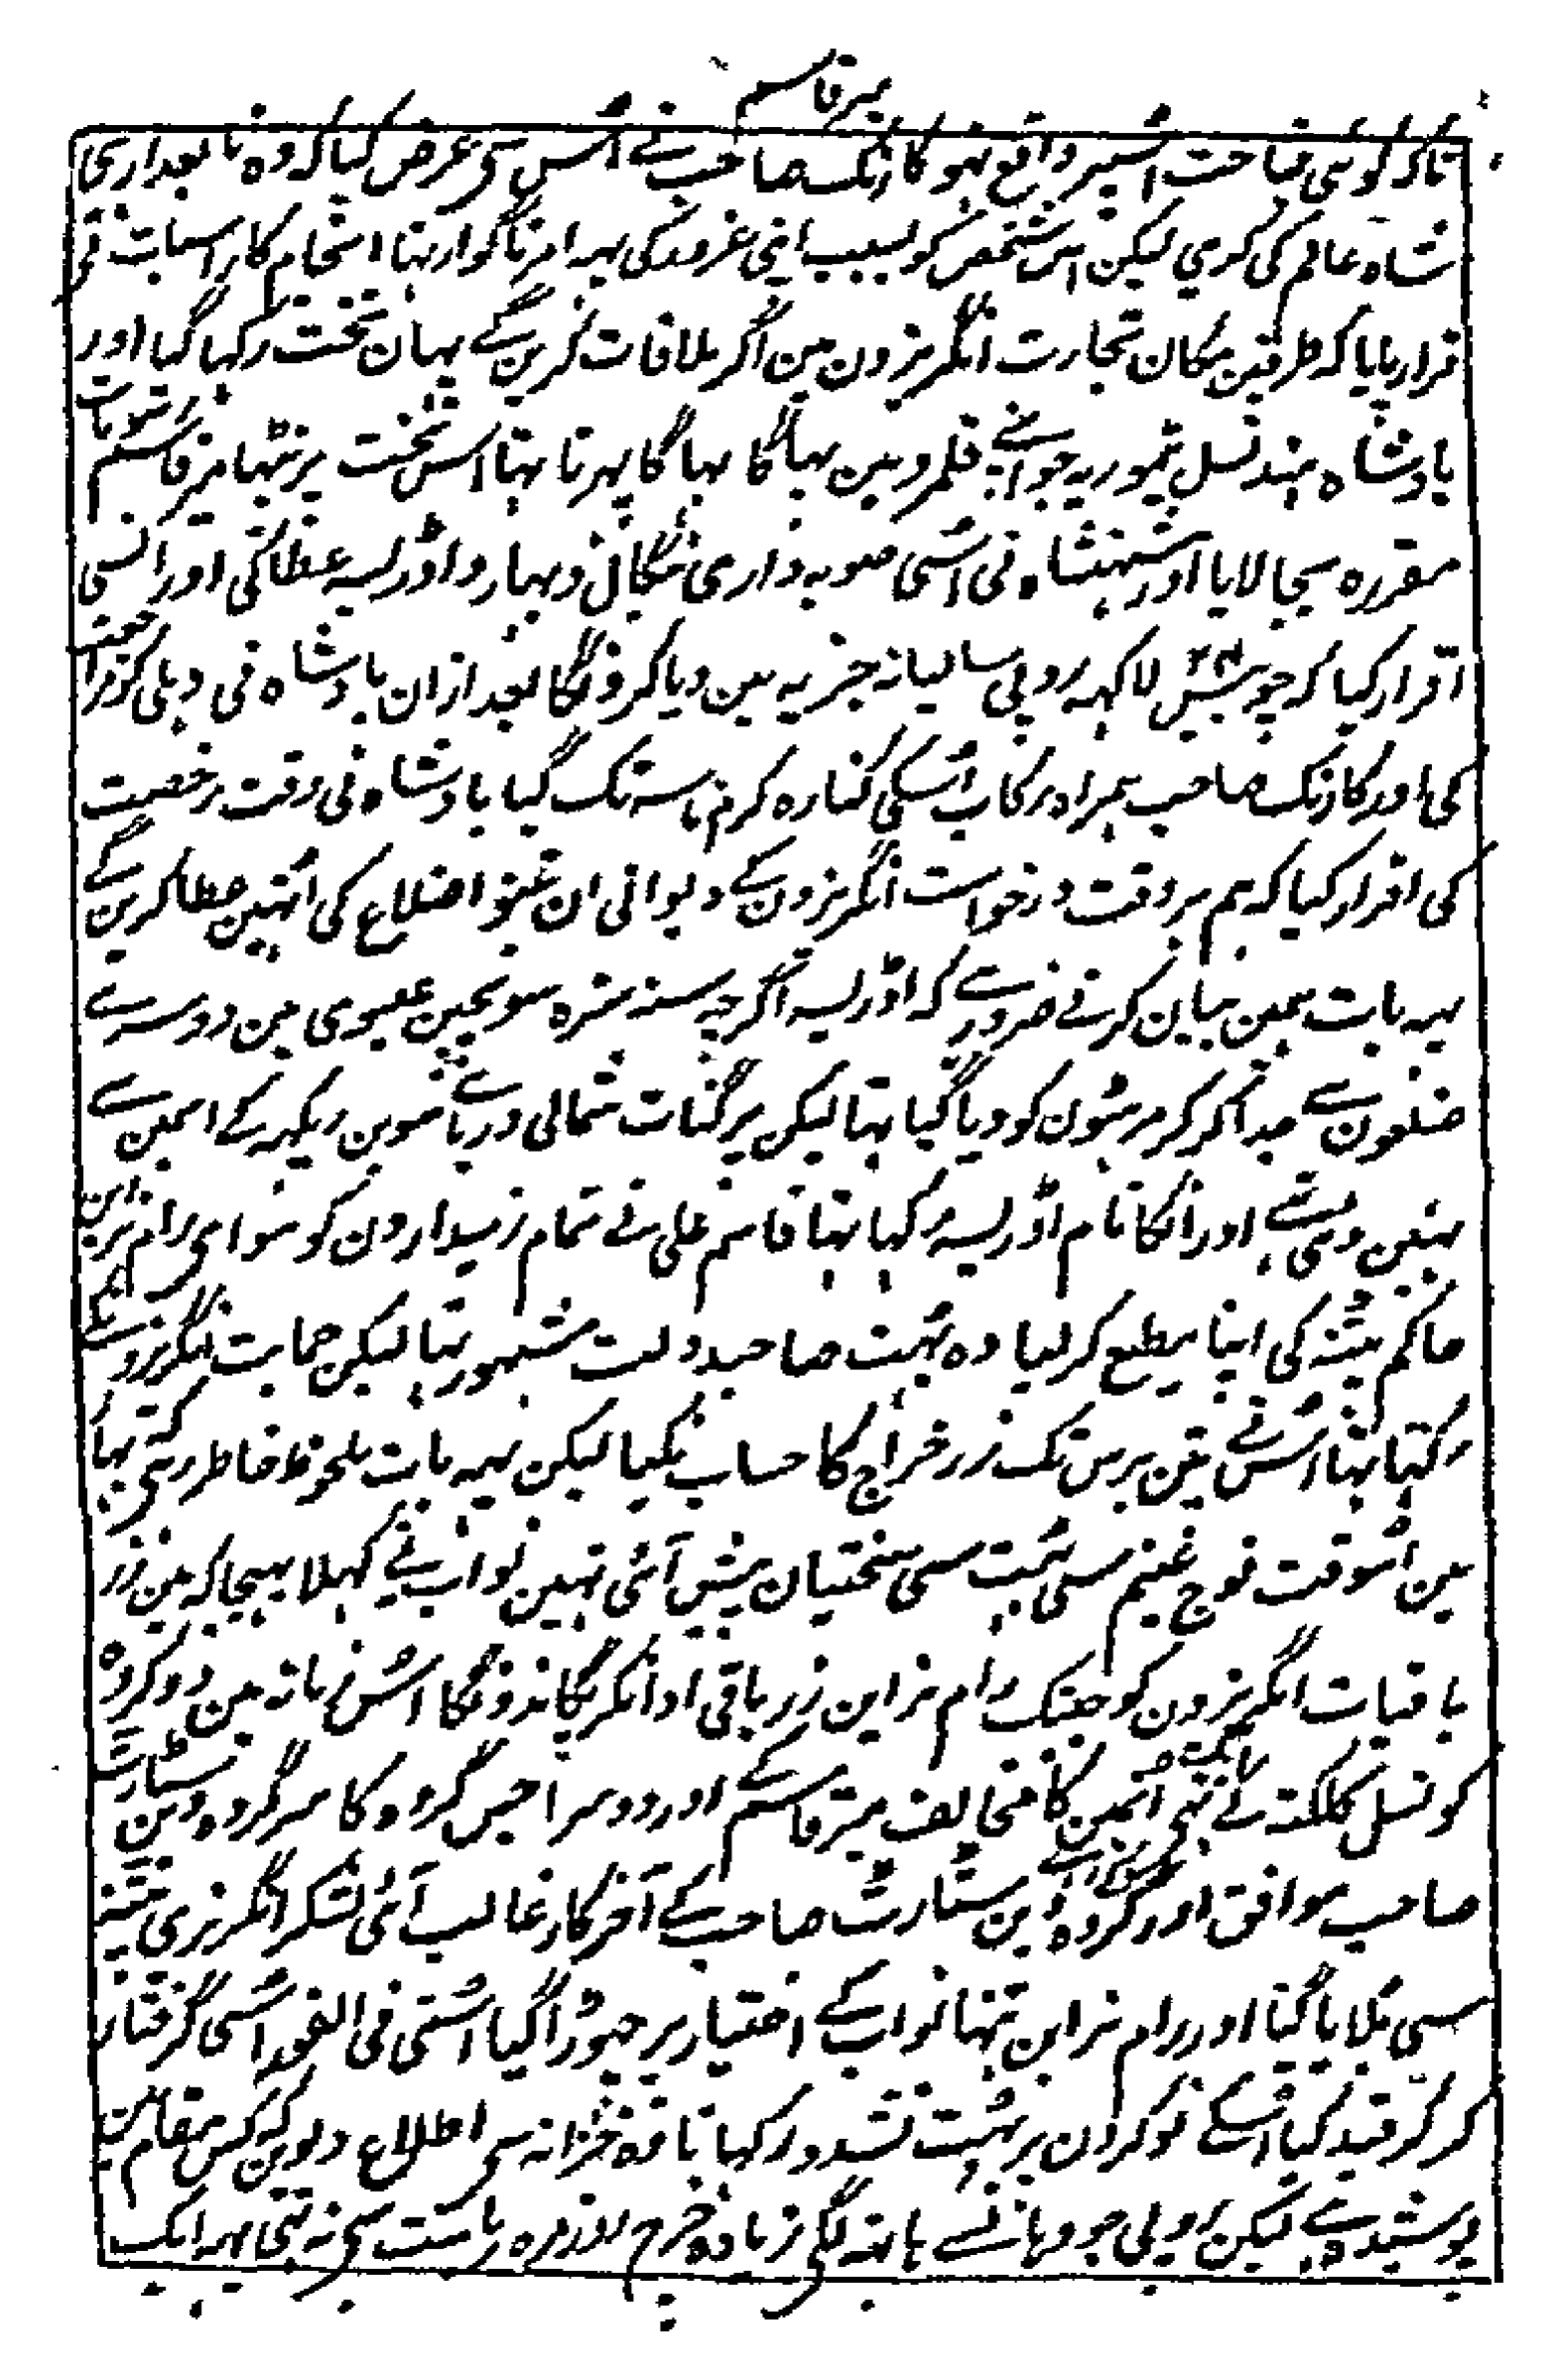 میر قاسم
تاکہ کوئی قباحت اسمیں واقع نہو کارنک صاحب نے اُس سی عرض کیا کہ وہ تابعداری
شاہ عالم کی کری لیکن اس شخص کو بسبب اپنی غرور کی یہہ امر ناگوار تہا انجام کار اسبات نی
قرار پایا کہ طرفین مکان تجارت انگریزون مین اگر ملاقات کرین گے یہان تخت رکہا گیا اور
بادشاہ ہند نسل تیموریہ جو اپنے قلمرو مین بہاگا بہاگا پہرتا تہا اُس تخت پر بیٹہا میر قاسم رسومات
مقررہ بجا لایا اور شہنشاہ نی اُسی صوبہ داری بنگال و بہار و اوڑیسہ عطا کی اور اُسی
اقرار کیا کہ چوبیس ۲۴ لاکہہ روپی سالیانہ جزیہ مین دیا کرونگا بعد ازان بادشاہ نی دہلی کو مراجعت
کی اور کارنک صاحب ہمراہ رکاب اُسکی کنارہ کرم ناسہ تک گیا بادشاہ نی وقت رخصت
کی اقرار کیا کہ ہم ہر وقت درخواست انگریزون کے دیوانی ان تینو اضلاع کی اُنہین عطا کرین گے
یہہ بات ہمین بیان کرنے ضرور ہے کہ اوڑیسہ اگرچہ سنہ سترہ سو پچپن عیسوی مین دوسرے
ضلعون سے جدا کر کر مرہٹون کو دیا گیا تہا لیکن پرگنات شمالی دریاے سوبن ریکہہ کے اسمین سے
نہین دیئے تہے اور انکا نام اوڑیسہ رکہا تہا قاسم علی نے تمام زمیدارون کو سوای رام نراین
حاکم پٹنہ کی اپنا مطیع کر لیا وہ بہت صاحب دولت مشہور تہا لیکن حمایت انگریزونکے
رکہتا تہا اُس نے تین برس تک زر خراج کا حساب نکیا لیکن یہہ بات ملحوظ خاطر رہی کہ بہار
مین اُسوقت فوج غنیم سی بہت سی سختیان پیش آئی تہین نواب نے کہلا بہیجا کہ مین زر
باقیات انگریزون کو جبتک رام نراین زر باقی ادا نکریگا ندونگا اُس زمانہ مین دو گروہ
کونسل کلکتہ کے تہی ایک اُنمین کا مخالف میر قاسم کے اور دوسرا جس گروہ کا سرگروہ وین سٹارٹ
صاحب موافق اور گروہ وین سٹارٹ صاحب کے آخر کار غالب آئی لشکر انگریزی پٹنہ
سی بلایا گیا اور رام نراین تنہا نواب کے اختیار پر چہوڑا گیا اُسنی فی الفور اُسی گرفتار
کر کر قید کیا اُسکے نوکرون پر بہت تشدد رکہا تا وہ خزانہ سی اطلاع دیوین کہ کس مقام مین
پوشیدہ ہے لیکن روپی جو وہانسے ہاتہہ لگے زیادہ خرچ روزمرہ ریاست سی نہ تہی یہہ ایک